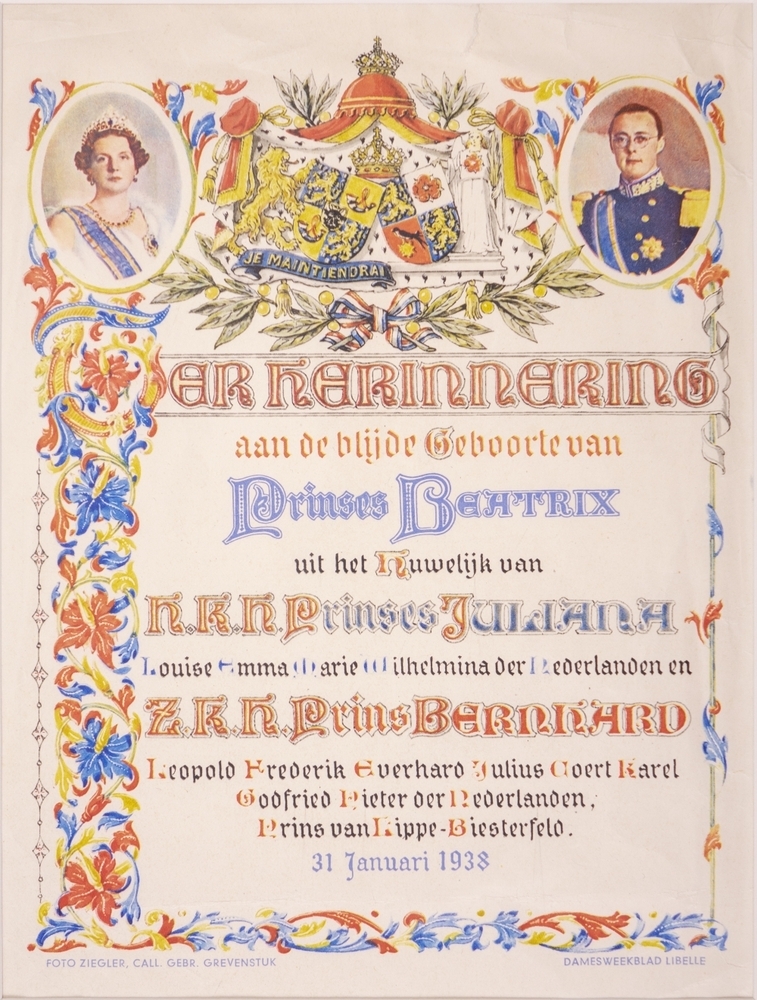 JE MAINTIENDRAI
TER HERINNERING
aan de blijde Geboorte van
Prinses BEATRIX
uit het Huwelijk van
H.K.H. Prinses JULIANA
Louise Emma Marie Wilhelmina der Nederlanden en
Z.K.H. Prins BERNHARD
Leopold Frederik Everhard Julius Coert Karel
Godfried Pieter der Nederlanden,
Prins van Lippe-Biesterfeld.
31 Januari 1938
FOTO ZIEGLER, CALL. GEBR. GREVENSTUK
DAMESWEEKBLAD LIBELLE